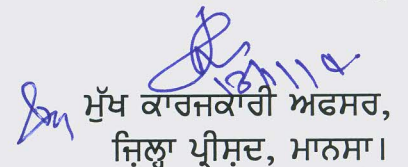 ਮੁੱਖ ਕਾਰਜਕਾਰੀ ਅਫਸਰ,
ਜ਼ਿਲ੍ਹਾ ਪ੍ਰੀਸ਼ਦ, ਮਾਨਸਾ।